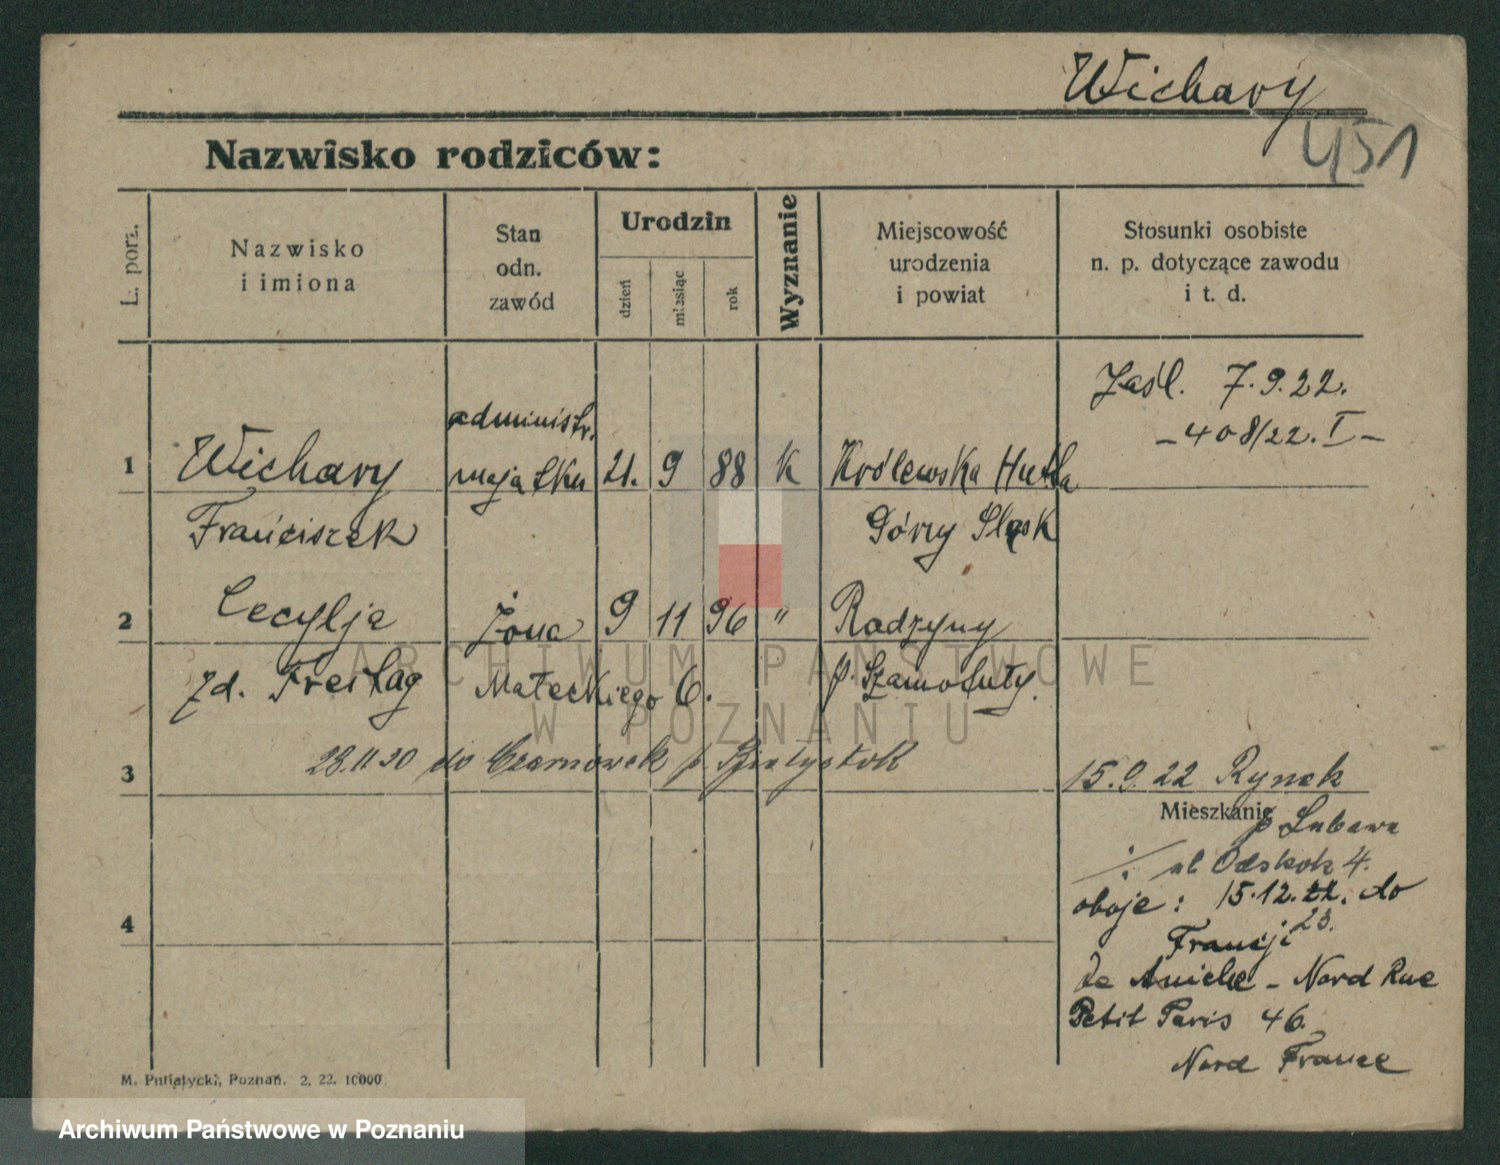 Wichary
451
Nazwisko rodziców:
L. porz.
Nazwisko
i imiona
Stan
odn.
zawód
Urodzin
dzień
miesiąc
rok
Wyznanie
Miejscowość
urodzenia
i powiat
Stosunki osobiste
n. p. dotyczące zawodu
i t. d.
7. 9. 22.
-408/22. I-
administr.
1 Wichary majątku 21. 9 88 k Królewska Huta
Franciszek Górny Śląsk
2 Cecylja żona 9 11 96 " Radzyny
zd. Freitag Małeckiego 6. p. Szamotuły.
3 28.11.30 do p. Białystok
15.9.22 Rynek
Mieszkanie
p Lubawa
ul. Odskok 4.
oboje: 15.12.22. do
23.
Francji
4
Aniche - Nord Rue
Petit Paris 46.
Nord France
M. Putiatycki, Poznań. 2. 22. 10000
ARCHIWUM PAŃSTWOWE
W POZNANIU
Archiwum Państwowe w Poznaniu